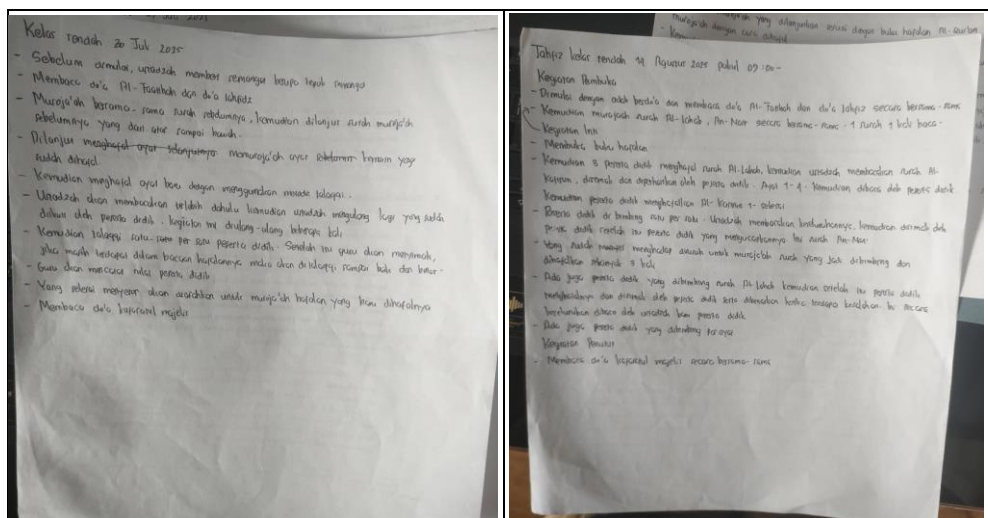 Kelas rendah 30 Juli 2025
- Sebelum dimulai, ustadzah memberi semangat berupa tepuk semangat
- Membaca do'a Al-Fatihah dan do'a tahfidz
- Muroja'ah bersama-sama surah sebelumnya, kemudian dilanjur surah muroja'ah
sebelumnya yang dari atas sampai bawah.
- Dilanjut menghafal ayat selanjutnya memuroja'ah ayat kemarin yang
sudah dihafal
- Kemudian meghafal ayat baru dengan menggunakan metode talaqqi.
- Ustadzah akan membacakan terlebih dahulu kemudian ustadzah mengulang lagi yang sudah
diikuti oleh peserta didik. kegiatan ini diulang-ulang beberapa kali
- Kemudian talaqqi satu-satu per satu peserta didik. Setelah itu guru akan menyimak,
jika masih terdapat dalam bacaan hafalannya maka akan di talaqqi sampai bisa dan benar.
- Guru akan mencatat nilai peserta didik
- Yang selesai menyetor akan diarahkan untuk muroja'ah hafalan yang baru dihafalnya
- Membaca do'a kafaratul majelis
muroja'ah yang dilanjutkan sesuai dengan buku hafalan Al-Qur'an
Tahfiz kelas rendah Agustus 2025 pukul 09:00-
Kegiatan Pembuka
- Dimulai dengan oleh berdo'a dan membaca do'a Al-Fatihah dan do'a tahfiz secara bersama-sama
- Kemudian murojaah surah Al-Lahab, An-Nasr secara bersama-sama. 1 surah 1 kali baca.
Kegiatan Inti
- Membuka buku hafalan
- Kemudian 8 peserta didik menghafal surah Al-Lahab, kemudian ustadzah membacakan surah Al-
Kafirun, disimak dan diperhatikan oleh peserta didik. Ayat 1-4. Kemudian dibaca oleh peserta didik
Kemudian peserta didik menghafalkan Al-Kafirun 1-selesai
- Peserta didik di bimbing satu per satu. Ustadzah membacakan kemudian disimak oleh
peserta didik setelah itu peserta didik yang mengucapkannya Ini surah An-Nasr
- Yang sudah menghafal disuruh untuk murojaah surah yang dibimbing dan
dihafalkan sebanyak 3 kali
- Ada juga peserta didik yang dibimbing surah Al-Lahab kemudian setelah itu peserta didik
menghafalnya dan disimak oleh peserta didik serta dibenarkan ketika terdapat kesalahan. Ini secara
bergantian dibaca oleh ustadzah baru peserta didik
- Ada juga peserta didik yang dibimbing
Kegiatan Penutup
- Membaca do'a kafaratul majelis secara bersama-sama